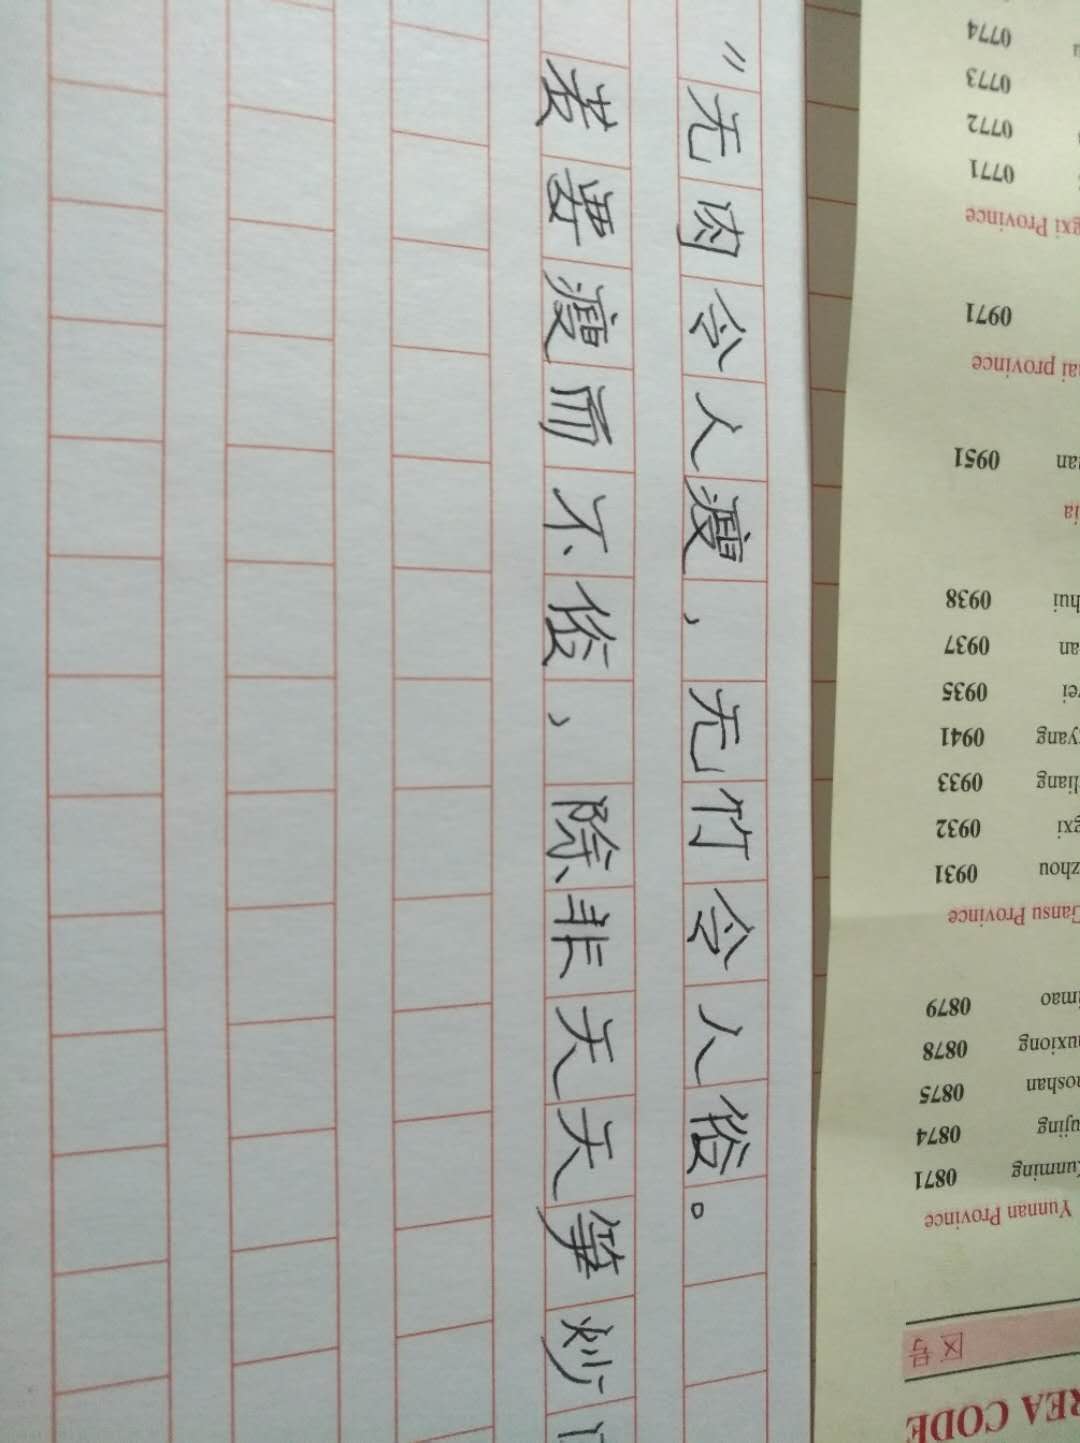 “无肉令人瘦，无竹令人俗。
若要瘦而不俗，除非天天笋炒
REA CODE
区号
Yunnan Province
unming 0871
ujing 0874
oshan 0875
uxiong 0878
imao 0879
Gansu Province
zhou 0931
gxi 0932
liang 0933
yang 0941
ei 0935
an 0937
hui 0938
ia
uan 0951
ai province
0971
gxi Province
0771
0772
0773
0774